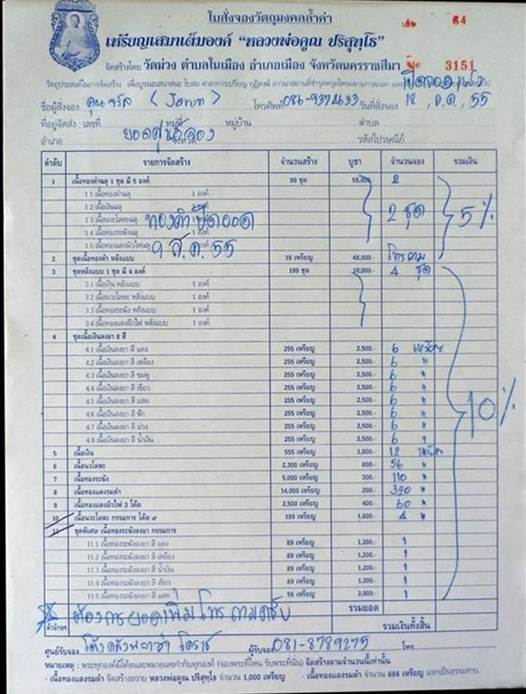 ใบสั่งจองวัตถุมงคลล้ำค่า
เล่ม 64
เหรียญเสมาเต็มองค์ "หลวงพ่อคูณ ปริสุทฺโธ"
จัดสร้างโดย วัดม่วง ตำบลในเมือง อำเภอเมือง จังหวัดนครราชสีมา
3151
ชื่อผู้สั่งจอง คุณจรัล (Jarun) โทรศัพท์ วันที่สั่งจอง 18, ต.ค, 55
ที่อยู่จัดส่ง : เลขที่ หมู่ที่ หมู่บ้าน ตำบล
อำเภอ จังหวัด รหัสไปรษณีย์
ยอดศูนย์จอง
ลำดับ รายการจัดสร้าง จำนวนสร้าง บูชา จำนวนจอง รวมเงิน
1 เนื้อทองคำฉลุ 1 ชุด มี 5 องค์ 99 ชุด 55,000.- 2
1.1 เนื้อทองคำฉลุ 1 องค์
1.2 เนื้อเงินฉลุ 1 องค์
1.3 เนื้อนวะโลหะฉลุ 1 องค์ 2 ชุด 5%
1.4 เนื้อทองระฆังฉลุ 1 องค์
1.5 เนื้อทองแดงผิวไฟฉลุ 1 องค์
ทองคำปิดยอด
9 ส.ค. 55
2 ชุดเนื้อทองคำ หลังแบบ 19 เหรียญ 48,000.- โทรถาม
3 ชุดหลังแบบ 1 ชุด มี 4 องค์ 199 ชุด 10,000.- 4 ชุด
3.1 เนื้อเงิน หลังแบบ 1 องค์
3.2 เนื้อนวะโลหะ หลังแบบ 1 องค์
3.3 เนื้อทองระฆัง หลังแบบ 1 องค์
3.4 เนื้อทองแดงผิวไฟ หลังแบบ 1 องค์
4 ชุดเนื้อเงินลงยา 8 สี
4.1 เนื้อเงินลงยา สี แดง 255 เหรียญ 2,500.- 6 เหรียญ
4.2 เนื้อเงินลงยา สี เหลือง 255 เหรียญ 2,500.- 6 "
4.3 เนื้อเงินลงยา สี ชมพู 255 เหรียญ 2,500.- 6 "
4.4 เนื้อเงินลงยา สี เขียว 255 เหรียญ 2,500.- 6 "
4.5 เนื้อเงินลงยา สี แสด 255 เหรียญ 2,500.- 6 " 10%
4.6 เนื้อเงินลงยา สี ฟ้า 255 เหรียญ 2,500.- 6 "
4.7 เนื้อเงินลงยา สี ม่วง 255 เหรียญ 2,500.- 6 "
4.8 เนื้อเงินลงยา สี น้ำเงิน 255 เหรียญ 2,500.- 6 "
5 เนื้อเงิน 555 เหรียญ 12 เหรียญ
6 เนื้อนวะโลหะ 2,300 เหรียญ 800.- 56 "
7 เนื้อทองระฆัง 5,000 เหรียญ 110 "
8 เนื้อทองแดงรมดำ 14,000 เหรียญ 200.- "
9 เนื้อทองแดงผิวไฟ 3 โค้ด 2,500 เหรียญ 400.- 60 "
10 เนื้อนวะโลหะ กรรมการ โค้ด ๙ 199 เหรียญ 4 "
11 ชุดพิเศษ เนื้อทองระฆังลงยา กรรมการ
11.1 เนื้อทองระฆังลงยา สี แดง 89 เหรียญ 1,200.- 1
11.2 เนื้อทองระฆังลงยา สี เหลือง 89 เหรียญ 1,200.- 1
11.3 เนื้อทองระฆังลงยา สี น้ำเงิน 89 เหรียญ 1,200.- 1
11.4 เนื้อทองระฆังลงยา สี เขียว 89 เหรียญ 1,200.- 1
11.5 เนื้อทองระฆังลงยา สี แสด 56 เหรียญ 2,000.- 1
ต้องการยอดเพิ่มโทรถามครับ
รวมยอด
ตัวอักษร รวมเงินทั้งสิ้น
ศูนย์รับจอง โคราช ผู้รับจอง 081-8789275 โทร
หมายเหตุ :
- เนื้อทองแดงรมดำ จัดสร้างถวาย หลวงพ่อคูณ ปริสุทฺโธ จำนวน 1,000 เหรียญ - เนื้อทองแดงรมดำ จำนวน 694 เหรียญ แจกเป็นธรรมทาน